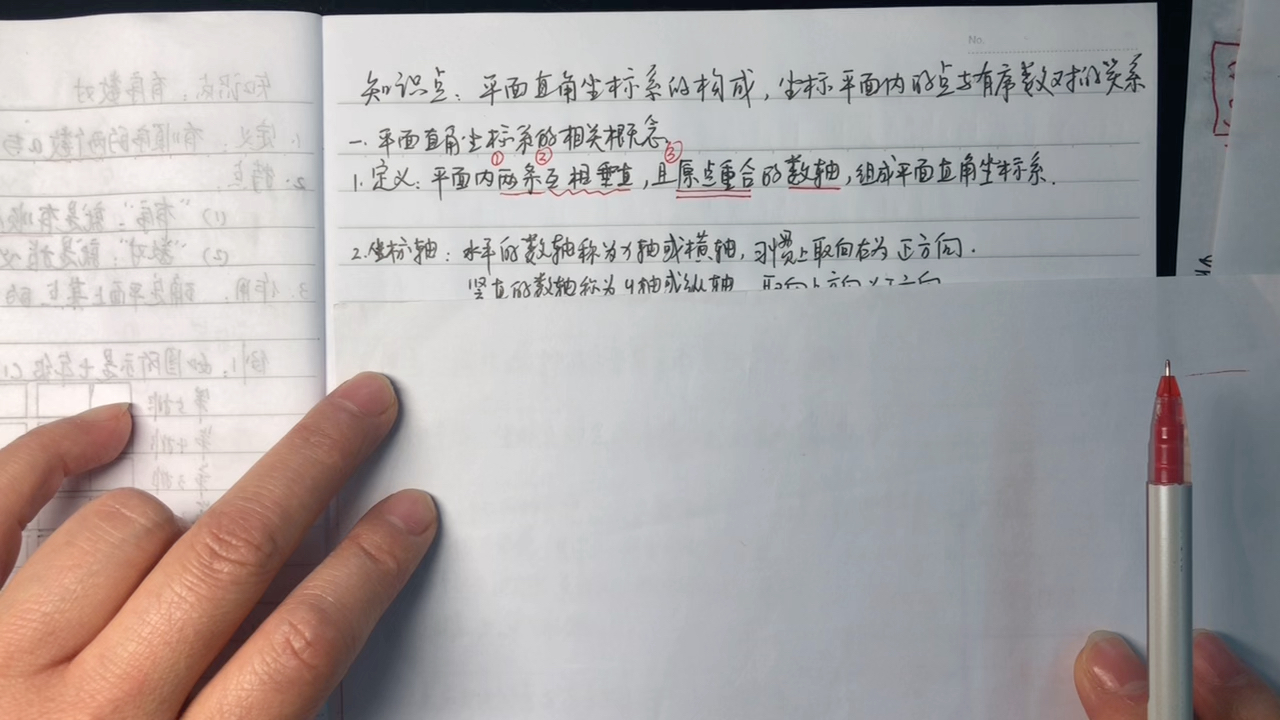 No.
知识点：平面直角坐标系的构成，坐标平面内的点与有序数对的关系
一.平面直角坐标系的相关概念
① ② ③
1.定义：平面内两条互相垂直，且原点重合的数轴，组成平面直角坐标系.
2.坐标轴：水平的数轴称为x轴或横轴，习惯上取向右为正方向.
竖直的数轴称为y轴或纵轴 取向上方向为正方向
知识点：有序数对
1.定义：有顺序的两个数a与
2.特点：
(1)"有序"：就是有顺
(2)"数对"：就是
3.作用：
例1.如图所示是七年级(1)
第5排
第4排
第3排